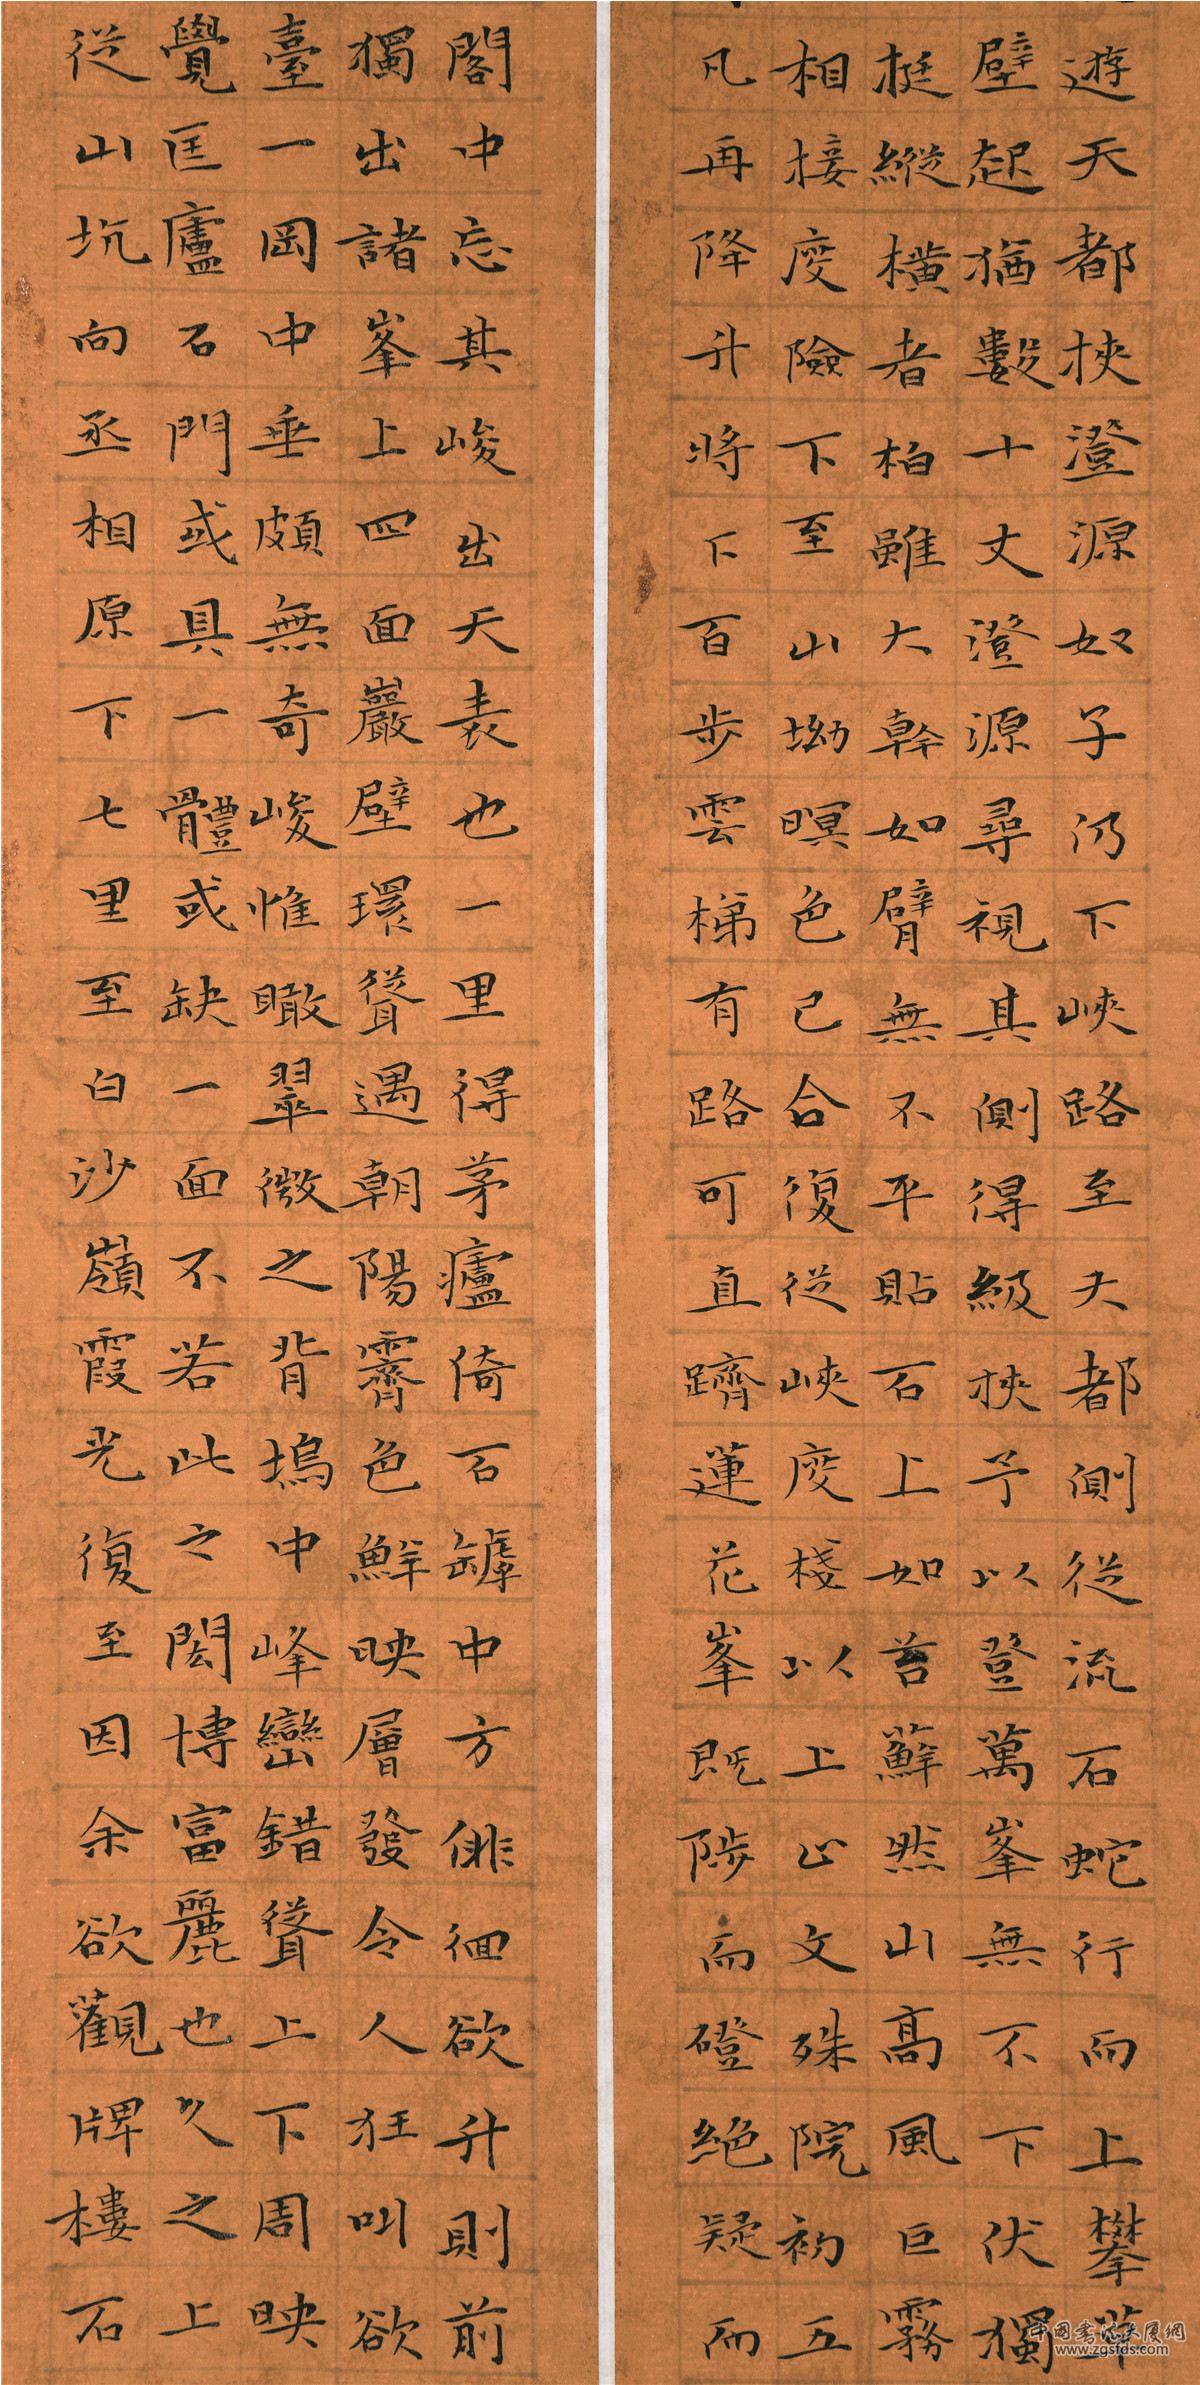 遊天都挾澄源奴子仍下峽路至天都側從流石蛇行而上攀草
壁起猶數十丈澄源尋視其側得級挾予以登萬峯無不下伏獨
梃縱橫者柏雖大幹如臂無不平貼石上如苔蘚然山高風巨霧
相接度險下至山坳暝色已合復從峽度棧以上止文殊院初五
凡再降升將下百步雲梯有路可直躋蓮花峯既陟而磴絕疑而
閣中忘其峻出天表也一里得茅廬倚石罅中方俳徊欲升則前
獨出諸峯上四面巖壁環聳遇朝陽霽色鮮映層發令人狂叫欲
臺一岡中垂頗無奇峻惟瞰翠微之背塢中峰巒錯聳上下周映
覺匡廬石門或具一體或缺一面不若此之閎博富麗也久之上
從山坑向丞相原下七里至白沙嶺霞光復至因余欲觀牌樓石
中國書法大厦網
www.zgsfds.com